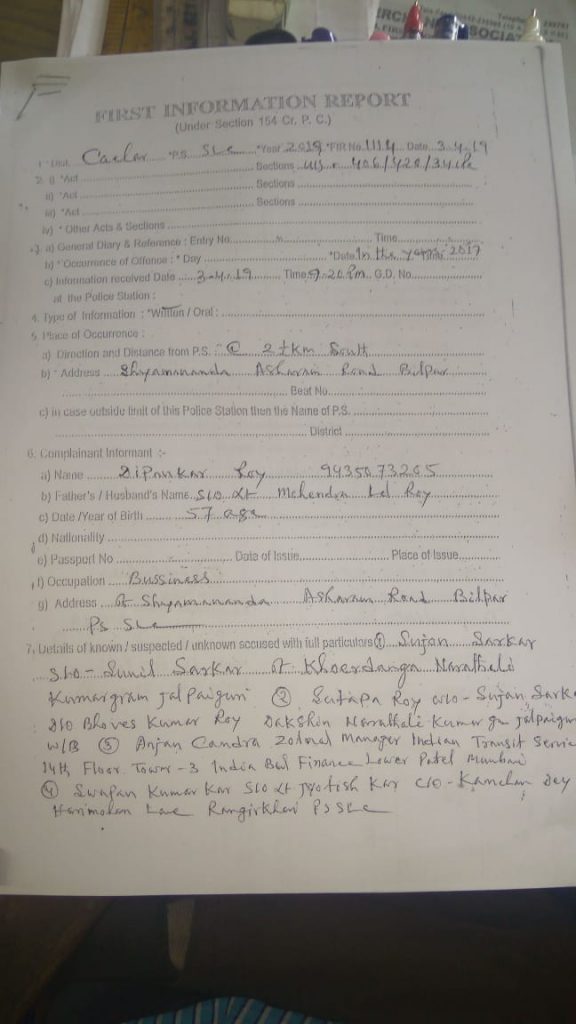 FIRST INFORMATION REPORT
(Under Section 154 Cr. P. C.)
1 * Dist. Cachar *P.S. SLc *Year 2019 *FIR No. 1114 Date 3.4.19
2. i) *Act Sections U/S 406/420/34 IPC
ii) *Act Sections
iii) *Act Sections
iv) * Other Acts & Sections
3. a) General Diary & Reference : Entry No. Time
b) * Occurrence of Offence : * Day *Date In the year 2017
c) Information received Date 3-4-19 Time 9.20 Pm G.D. No.
at the Police Station :
4. Type of Information : *Written / Oral :
5. Place of Occurrence :
a) Direction and Distance from P.S. : @ 2½ km South
b) * Address Shyamananda Ashram Road Bilpar
Beat No.
c) in case outside limit of this Police Station then the Name of P.S.
District
6. Complainant Informant :-
a) Name Dipankar Roy 9435073265
b) Father's / Husband's Name S/o Lt Mohendra Lal Roy
c) Date /Year of Birth 57 age
d) Nationality
e) Passport No Date of Issue Place of Issue
f) Occupation Bussiness
g) Address of Shyamananda Ashram Road Bilpar
PS SLc
7. Details of known / suspected / unknown accused with full particulars ① Sujan Sarkar
S/o - Sunil Sarkar of Khoerdanga Narathali
Kumargram Jalpaiguri ② Sutapa Roy w/o - Sujan Sarka
D/o Bhoves Kumar Roy Dakshin Narathali Kumar gm Jalpaiguri
W/B ③ Anjan Candra Zotonal Manager Indian Transit Servic
14th Floor Tower - 3 India Bul Finance Lower Patel Mumbai
④ Swapan Kumar Kar S/o Lt Jyotish Kar C/o - Kanchan Dey
Harimohan Lane Rangirkhari PS SLc